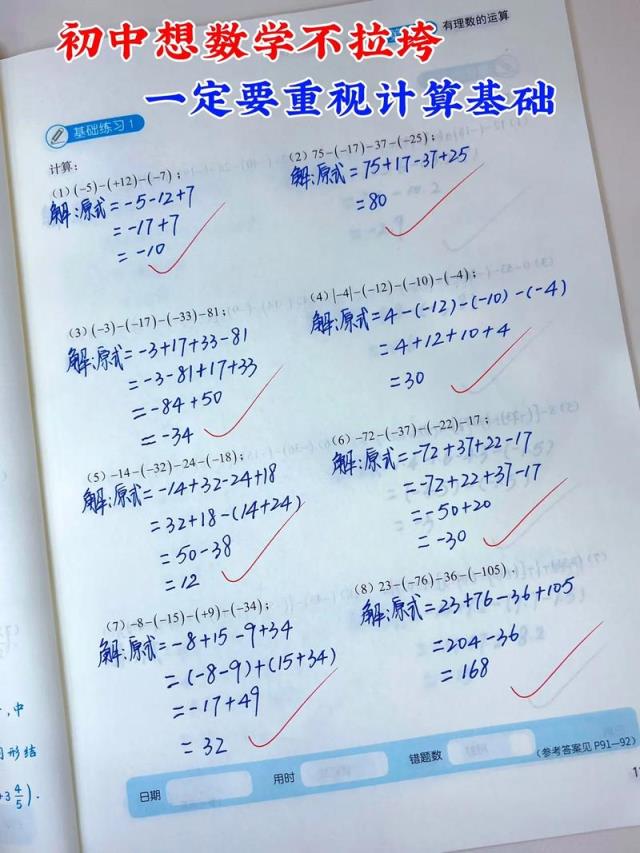 初中想数学不拉垮
有理数的运算
一定要重视计算基础
基础练习1
计算：
(1) (-5)-(+12)-(-7)；
解:原式=-5-12+7
=-17+7
=-10
(2) 75-(-17)-37-(-25)；
解:原式=75+17-37+25
=80
(3) (-3)-(-17)-(-33)-81；
解:原式=-3+17+33-81
=-3-81+17+33
=-84+50
=-34
(4) |-4|-(-12)-(-10)-(-4)；
解:原式=4-(-12)-(-10)-(-4)
=4+12+10+4
=30
(5) -14-(-32)-24-(-18)；
解:原式=-14+32-24+18
=32+18-(14+24)
=50-38
=12
(6) -72-(-37)-(-22)-17；
解:原式=-72+37+22-17
=-72+22+37-17
=-50+20
=-30
(7) -8-(-15)-(+9)-(-34)；
解:原式=-8+15-9+34
=(-8-9)+(15+34)
=-17+49
=32
(8) 23-(-76)-36-(-105)．
解:原式=23+76-36+105
=204-36
=168
，中
形结
+3 4/5).
日期
用时
错题数
(参考答案见 P91—92)